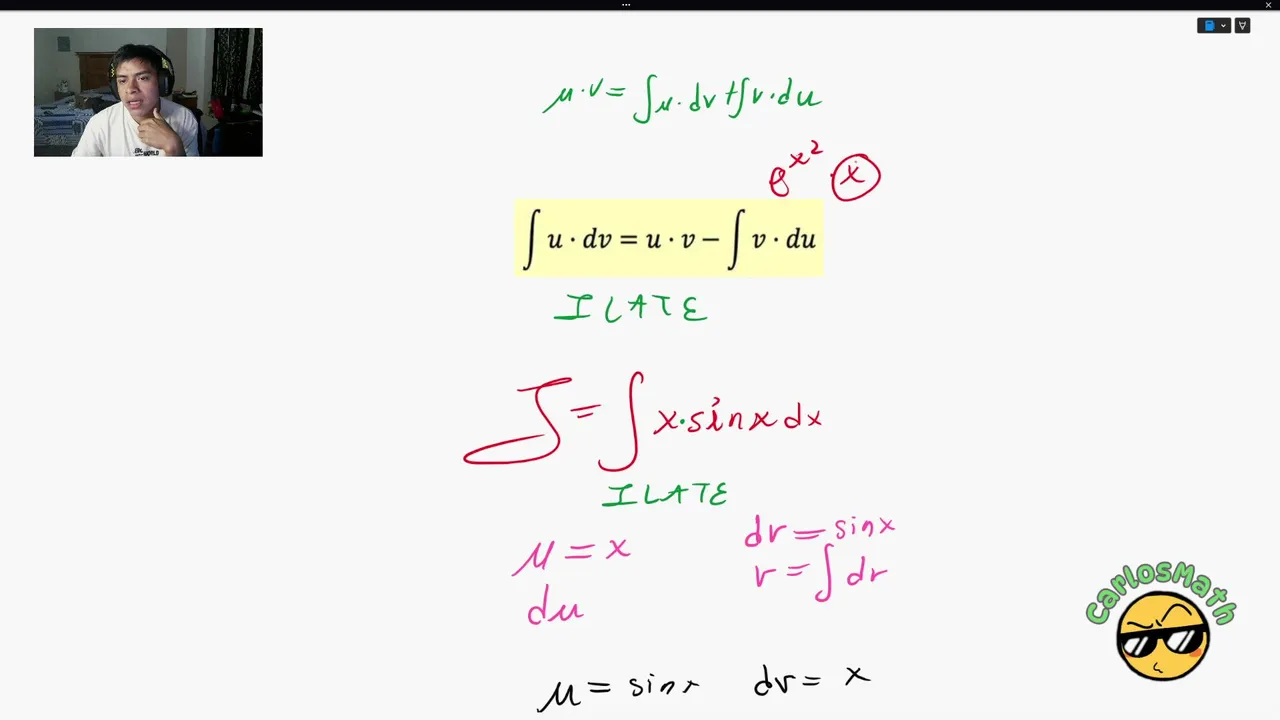 μ·v=∫μ·dv+∫v·du
e^{x^2} · x
∫ u · dv = u · v − ∫ v · du
ILATE
J=∫x·sinx dx
ILATE
μ=x dv=sinx
du v=∫dv
μ=sinx dv=x
CarlosMath